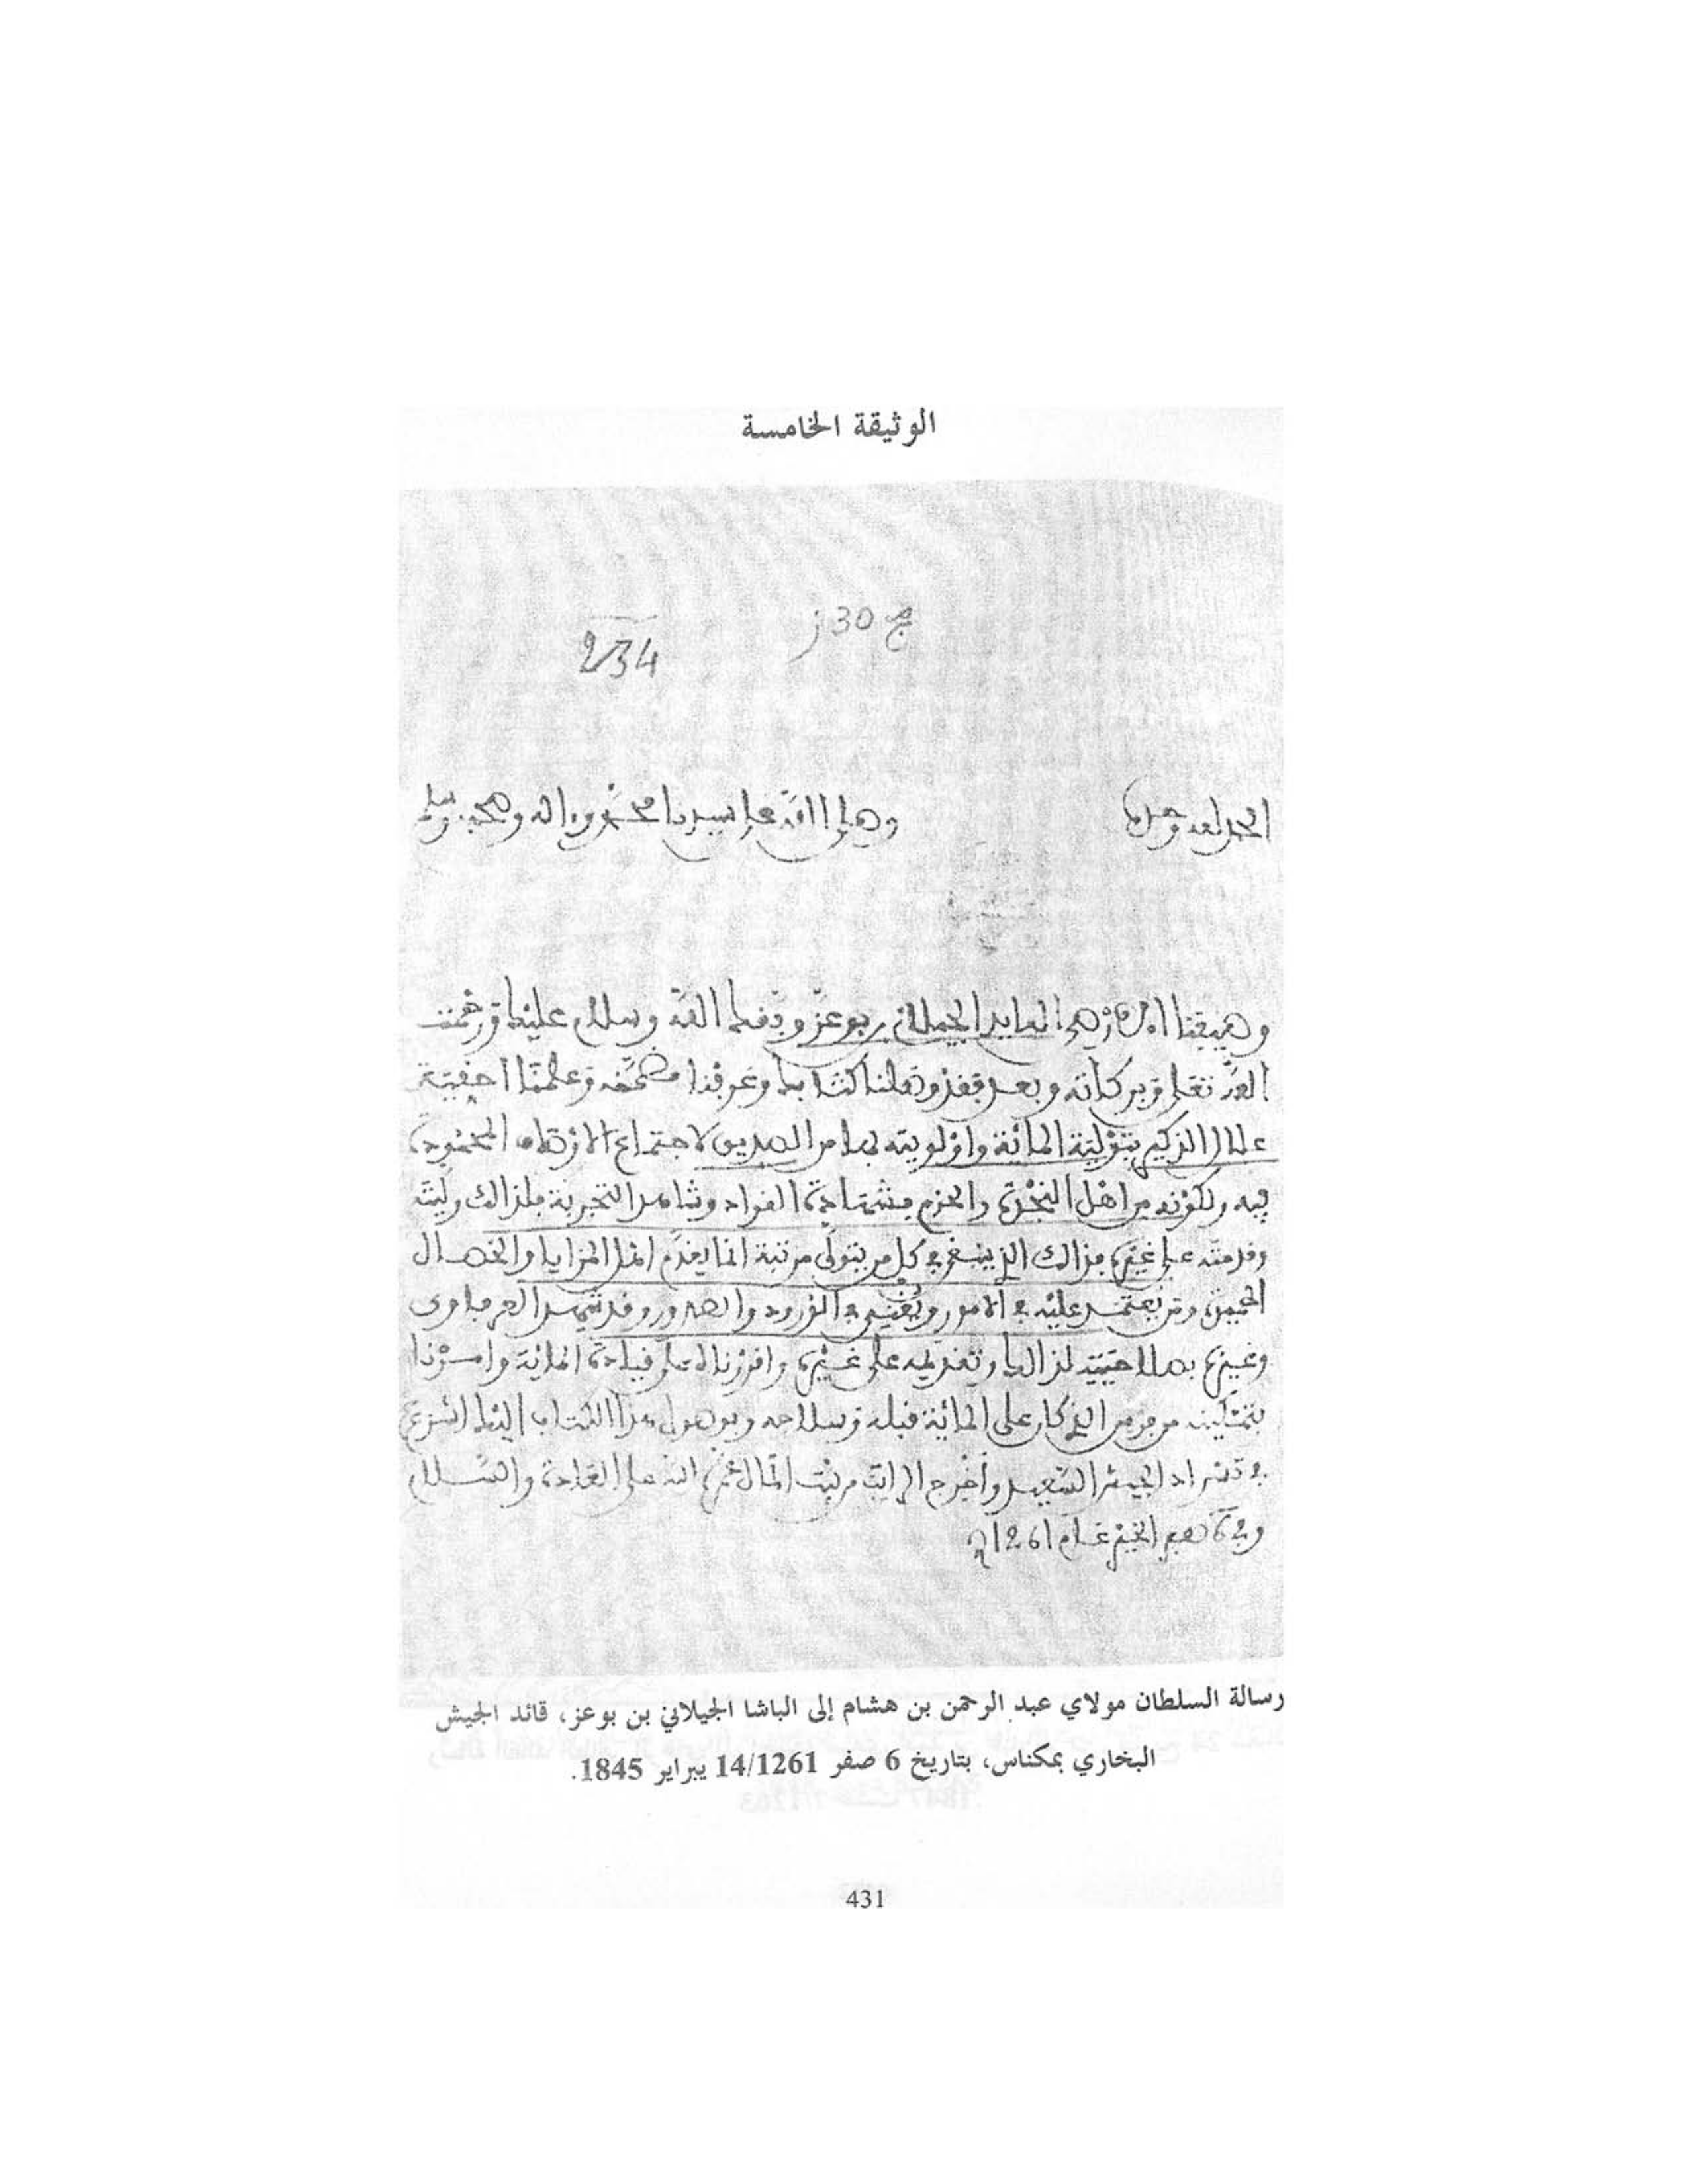 الوثيقة الخامسة
ج 30 ز
234
الحمد لله وحده
وصلى الله على سيدنا محمد وءاله وصحبه وسلم
وصيفنا الأرضى القايد الجيلاني بن بوعز وفقك الله وسلام عليك ورحمت
الله تعلى وبركاته وبعد فقد وصلنا كتابك وعرفنا مضمنه وعلمنا احقية
علال الزكيم بتولية المائة واولويته بها من الصديق لاجتماع الاوصاف المحمودة
فيه ولكونه من اهل النجدة والحزم بشهادة القواد وشاهد التجربة فلذالك وليته
وقدمته على غيره فذالك الذي ينبغي في كل من يتولى مرتبة انما يقدم اهل المزايا والخصال
الحميدة ومن يعتمد عليه في الامور ويغني في الورود والصدور وقد شهد العرفاوي
وغيره بصلاحيته لذالك وتقديمه على غيره واقررناه على قيادة المائة وامرنا
بتمكينه من فرس الذي كان على المائة قبله وسلاحه وبوصول هذا الكتاب اليك اشرع
في تسراد الجيش السعيد واخرج الراتب من بيت المال عمره الله على العادة والسلام
في 6 صفر الخير عام 1261
رسالة السلطان مولاي عبد الرحمن بن هشام إلى الباشا الجيلاني بن بوعز، قائد الجيش
البخاري بمكناس، بتاريخ 6 صفر 14/1261 يبراير 1845.
431